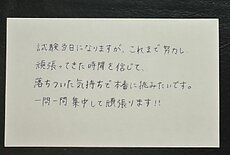 試験当日になりますが、これまで努力し
頑張ってきた時間を信じて、
落ちついた気持ちで本番に挑みたいです。
一問一問集中して頑張ります!!